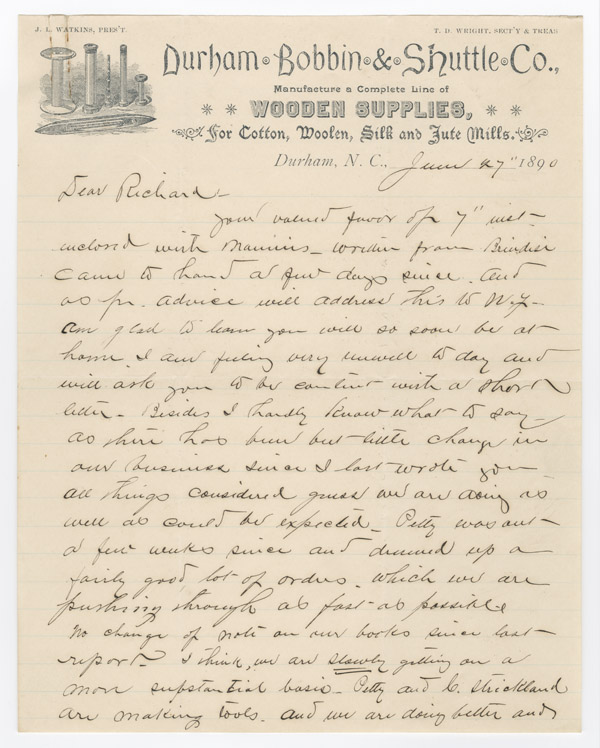 J. L. WATKINS, PRES'T.
T. D. WRIGHT, SECT'Y & TREAS
Durham Bobbin & Shuttle Co.,
Manufacture a Complete Line of
WOODEN SUPPLIES,
For Cotton, Woolen, Silk and Jute Mills.
Durham, N. C., June 27" 1890
Dear Richard -
your valued favor of 7" inst -
inclosed with Mamies - written from Brindisi
came to hand a few days since. And
as pr. advice will address this to N.Y. -
am glad to learn you will so soon be at
home. I am feeling very unwell to day and
will ask you to be content with a short
letter - Besides I hardly know what to say -
as there has been but little change in
our business since I last wrote you -
all things considered guess we are doing as
well as could be expected - Petty was out -
a few weeks since and drummed up a
fairly good lot of orders. which we are
pushing through as fast as possible
No change of note on our books since last -
report - I think, we are slowly getting on a
more substantial basis - Petty and C. Strickland
are making tools. and we are doing better and